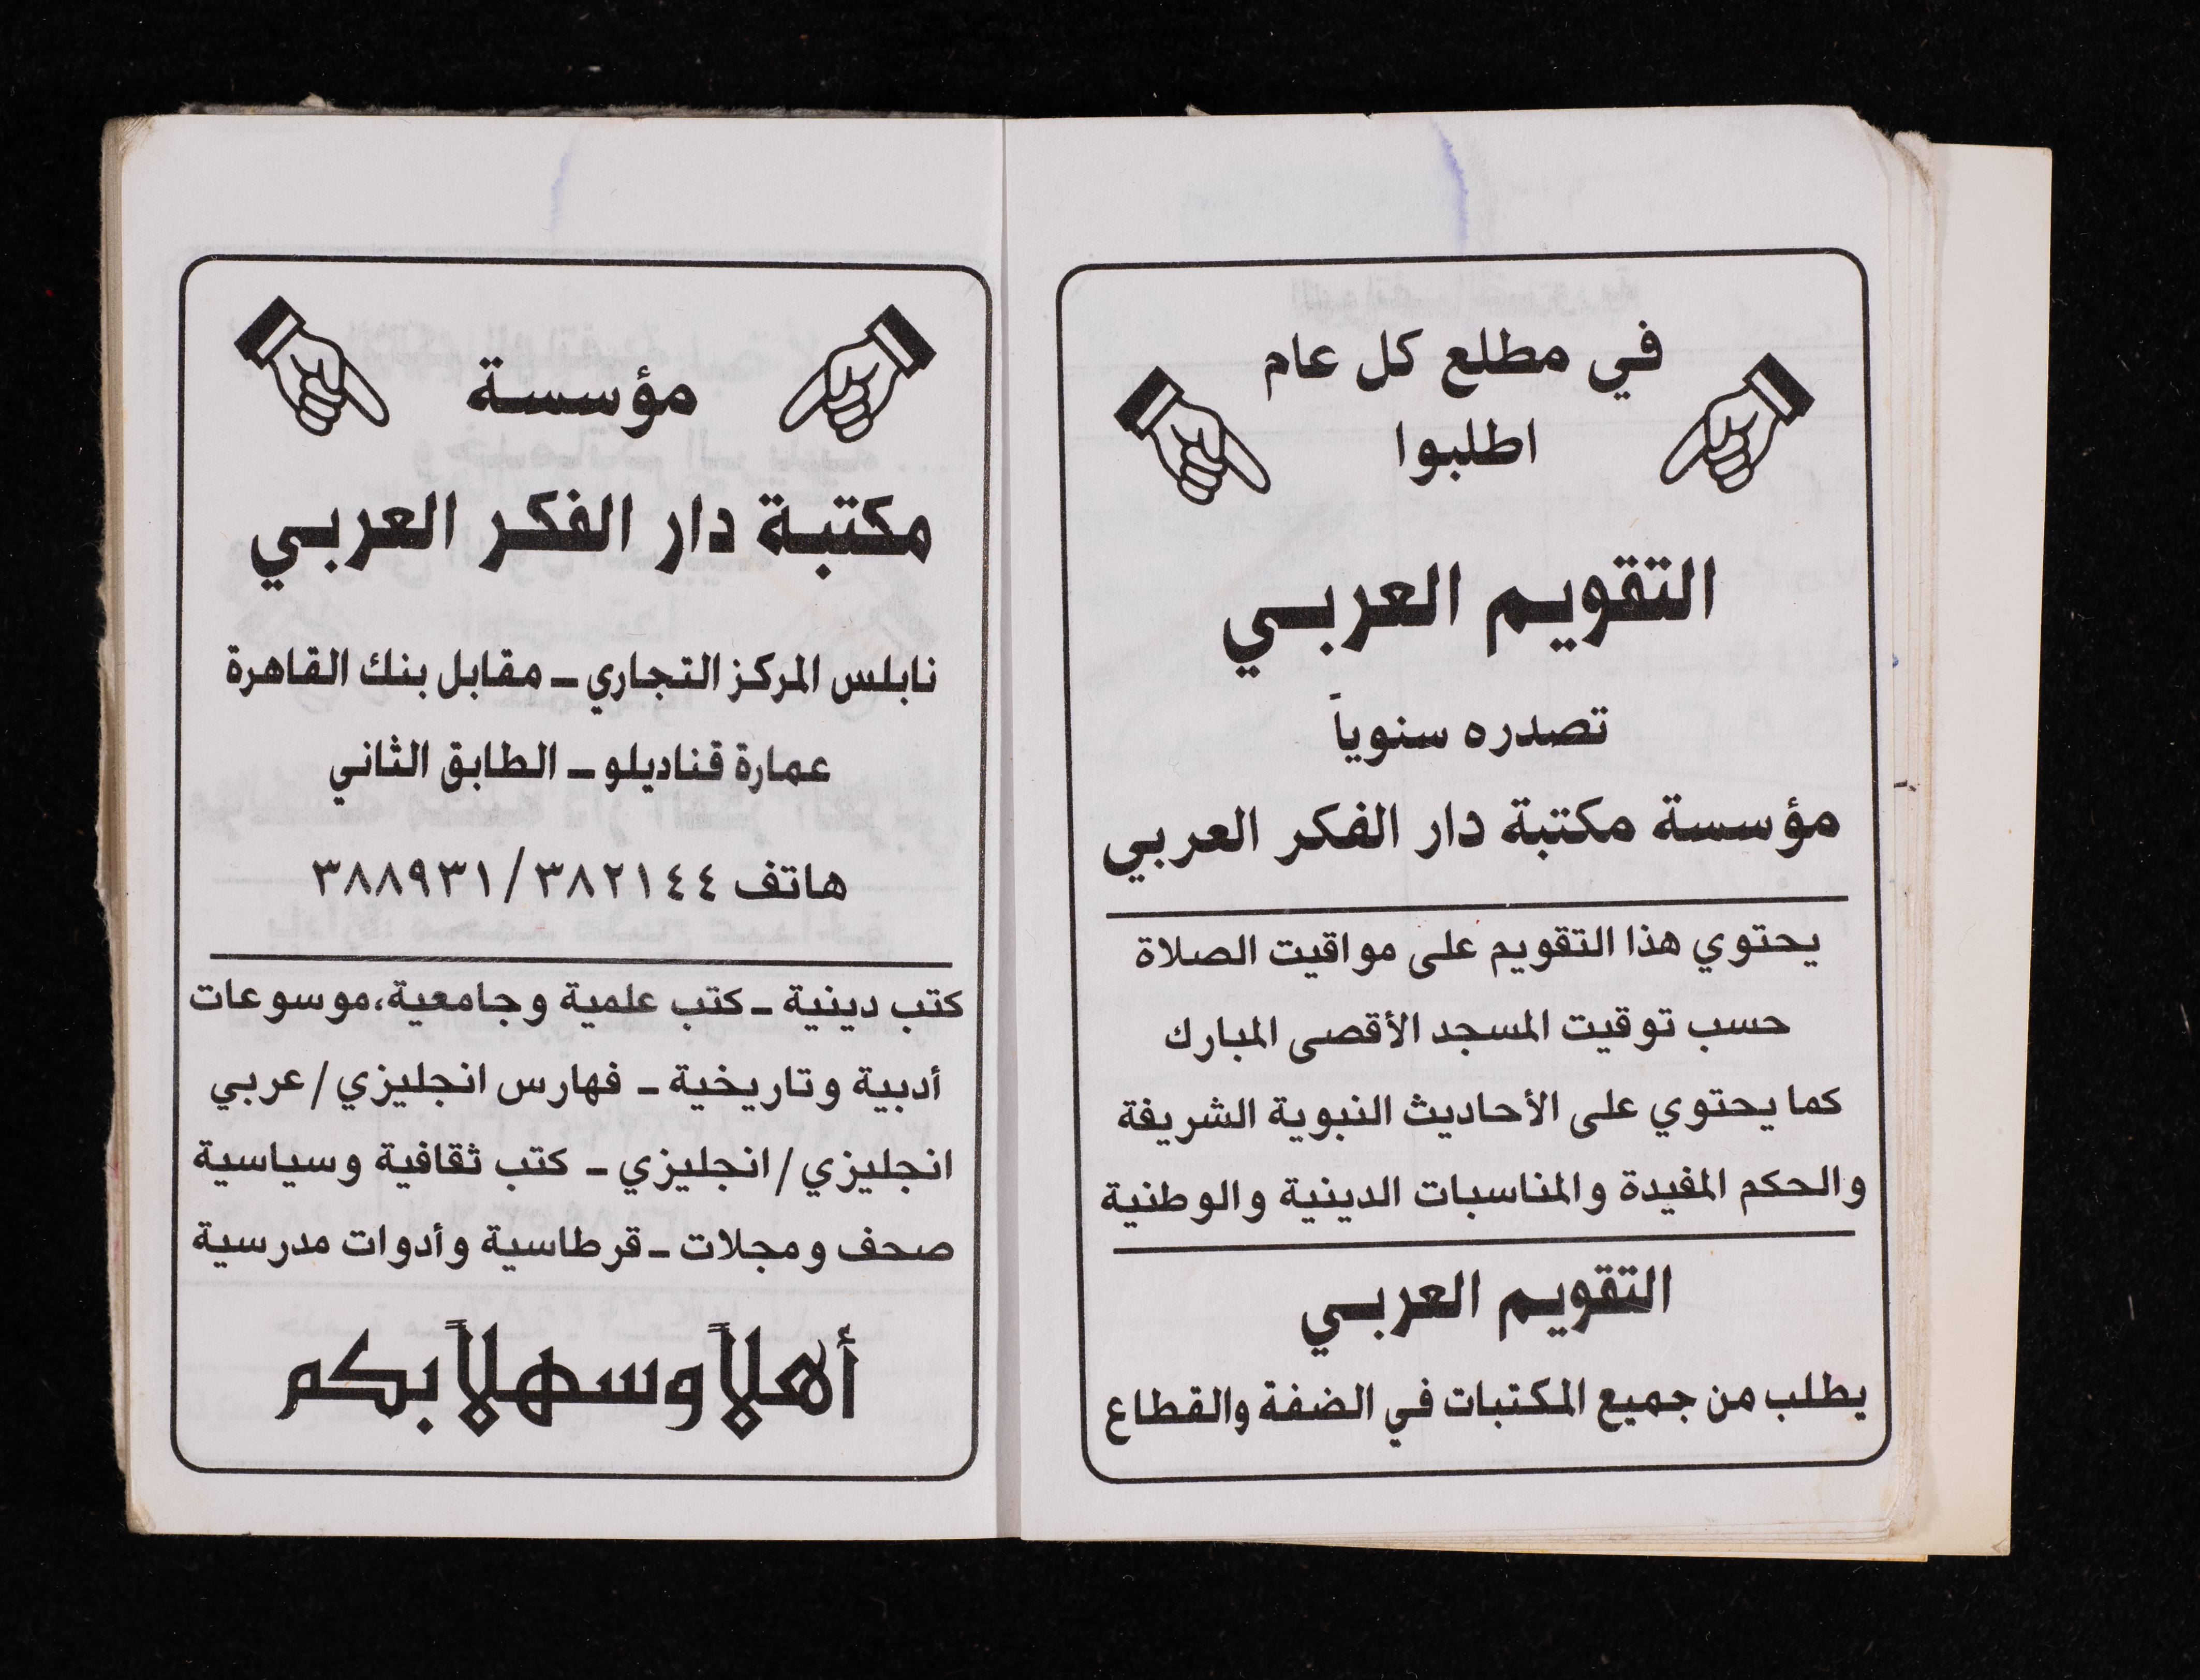 في مطلع كل عام
اطلبوا
التقويم العربي
تصدره سنوياً
مؤسسة مكتبة دار الفكر العربي
يحتوي هذا التقويم على مواقيت الصلاة
حسب توقيت المسجد الأقصى المبارك
كما يحتوي على الأحاديث النبوية الشريفة
والحكم المفيدة والمناسبات الدينية والوطنية
التقويم العربي
يطلب من جميع المكتبات في الضفة والقطاع
مؤسسة
مكتبة دار الفكر العربي
نابلس المركز التجاري ـ مقابل بنك القاهرة
عمارة قناديلو ـ الطابق الثاني
هاتف ٣٨٢١٤٤/٣٨٨٩٣١
كتب دينية ـ كتب علمية وجامعية،موسوعات
أدبية وتاريخية ـ فهارس انجليزي/عربي
انجليزي/انجليزي ـ كتب ثقافية وسياسية
صحف ومجلات ـ قرطاسية وأدوات مدرسية
أهلاً وسهلاً بكم